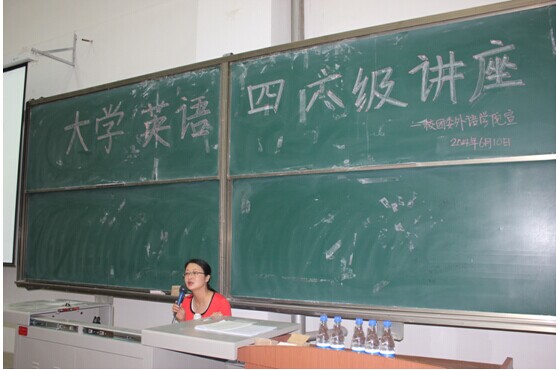 大学英语 四六级讲座
校团委外语学院宣
2014年6月10日